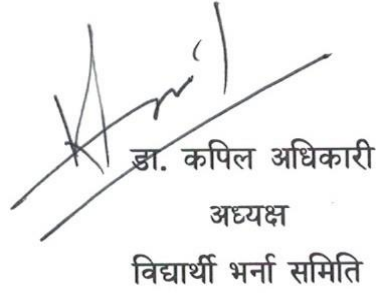 डा. कपिल अधिकारी
अध्यक्ष
विद्यार्थी भर्ना समिति